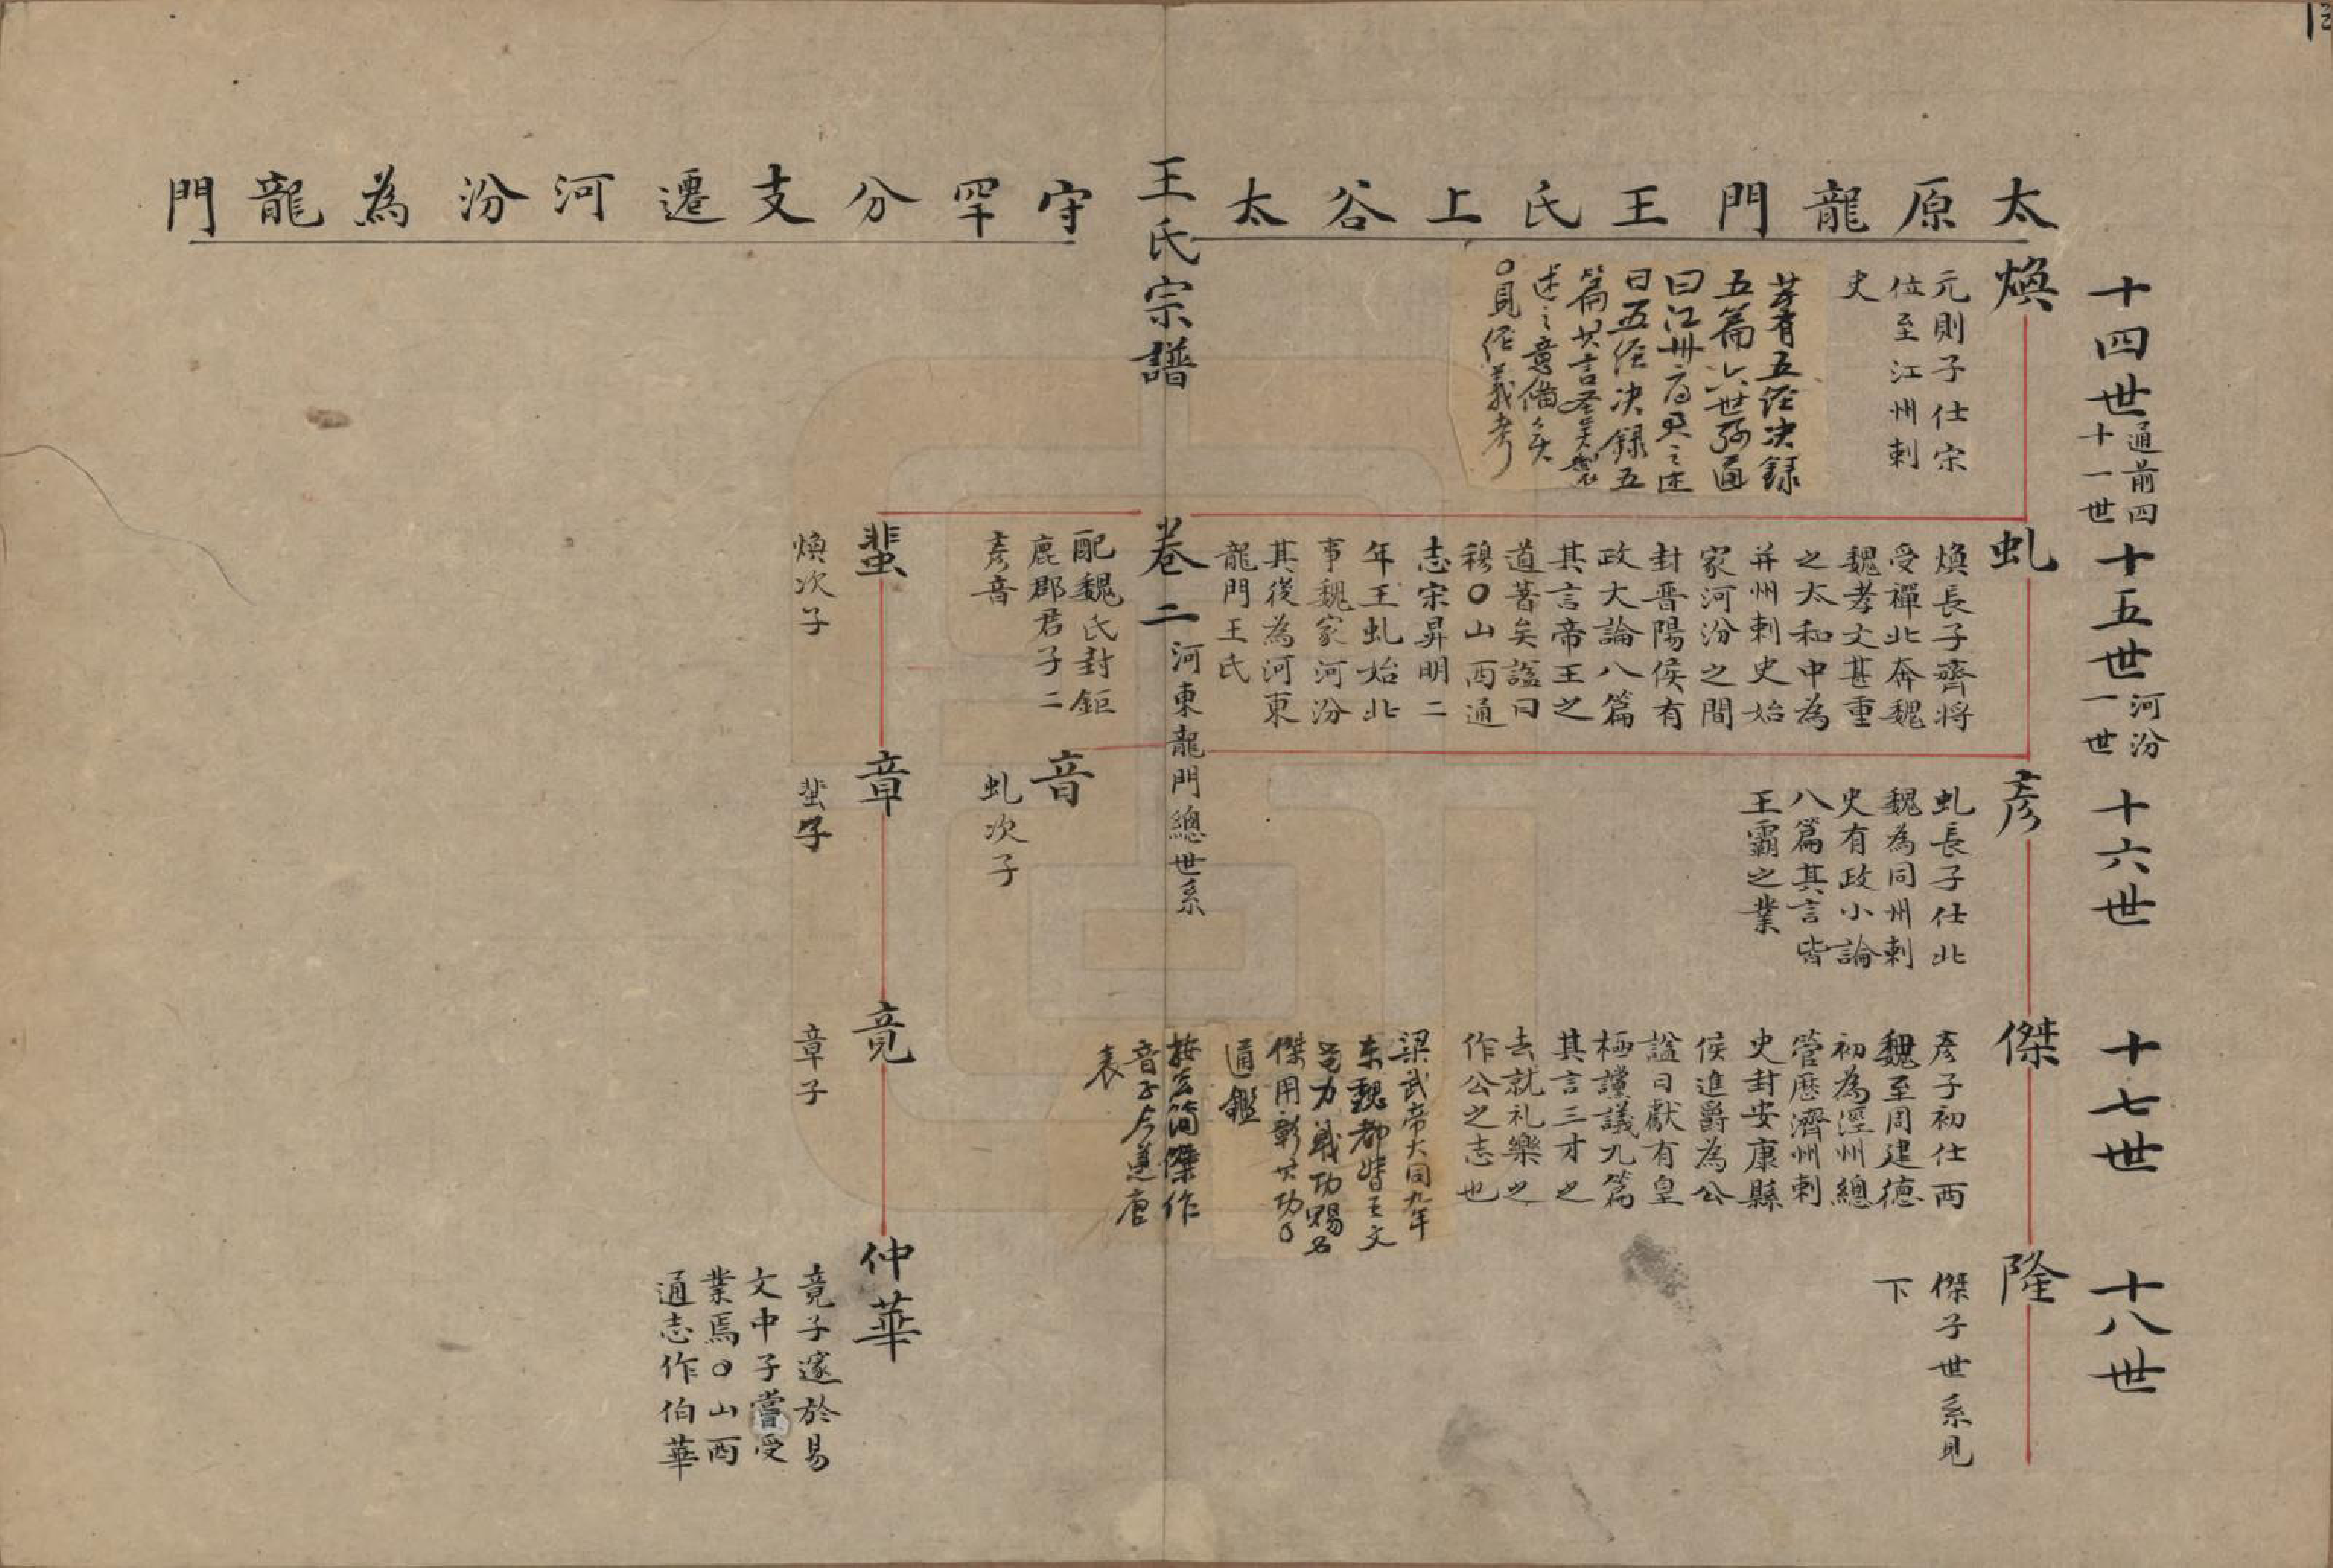 太原龍門王氏上谷太
守罕分支遷河汾為龍門
王氏宗譜
卷二
河東龍門總世系
十四世
通前四
十一世
十五世
河汾
一世
十六世
十七世
十八世
煥
元則子仕宋
位至江州刺
史
著有五經决録
五篇六世孫通
曰江州府君之述
曰五經决録五
篇其言聖賢製
述之意備矣
○見經義考
虬
煥長子齊將
受禪北奔魏
魏孝文甚重
之太和中為
并州刺史始
家河汾之間
封晋陽侯有
政大論八篇
其言帝王之
道著矣謚曰
穆○山西通
志宋昇明二
年王虬始北
事魏家河汾
其後為河東
龍門王氏
配魏氏封鉅
鹿郡君子二
彦音
蜚
煥次子
彦
虬長子仕北
魏為同州刺
史有政小論
八篇其言皆
王霸之業
音
虬次子
章
蜚子
傑
彦子初仕西
魏至周建德
初為涇州總
管歷濟州刺
史封安康縣
侯進爵為公
謚曰獻有皇
極讜議九篇
其言三才之
去就礼樂之
作公之志也
梁武帝大同九年
东魏都督王文
力戰功賜名
傑用彰其功○
通鑑
按云简傑作
音子今遵唐
表
竟
章子
隆
傑子世系見
下
仲華
竟子邃於易
文中子嘗受
業焉○山西
通志作伯華